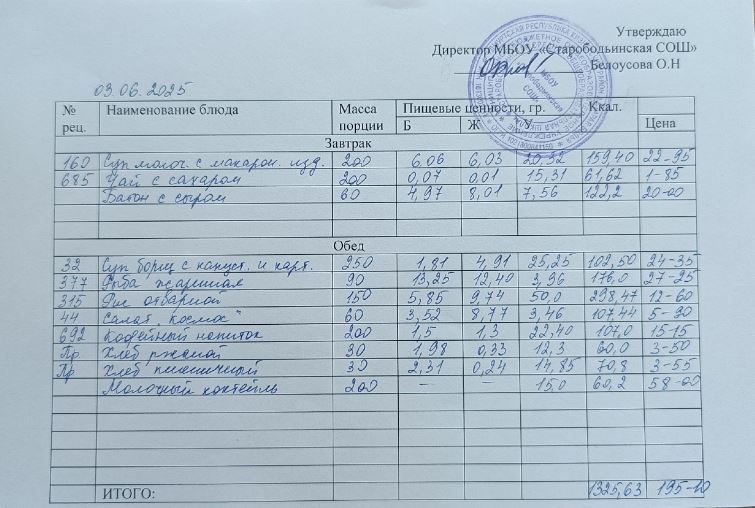 Утверждаю
Директор МБОУ «Старободьинская СОШ»
Белоусова О.Н
03.06.2025
№ рец. Наименование блюда Масса порции Пищевые ценности, гр. Б Ж У Ккал. Цена
Завтрак
160 Суп молоч. с макарон. изд. 200 6,06 6,03 20,32 159,40 22-95
685 Чай с сахаром 200 0,07 0,01 15,31 61,62 1-85
Батон с сыром 60 4,97 8,01 7,56 122,2 20-00
Обед
32 Суп борщ с капуст. и карт. 250 1,81 4,91 25,25 102,50 24-35
377 Рыба жаренная 90 13,25 12,40 3,96 176,0 27-25
315 Рис отварной 150 5,85 9,74 50,0 298,47 12-60
44 Салат "Космос" 60 3,52 8,77 3,46 107,44 5-30
692 Кофейный напиток 200 1,5 1,3 22,40 107,0 15-15
Пр Хлеб ржаной 30 1,98 0,33 12,3 60,0 3-50
Пр Хлеб пшеничный 30 2,31 0,24 14,85 70,8 3-55
Молочный коктейль 200 – – 15,0 60,2 58-00
ИТОГО: 1325,63